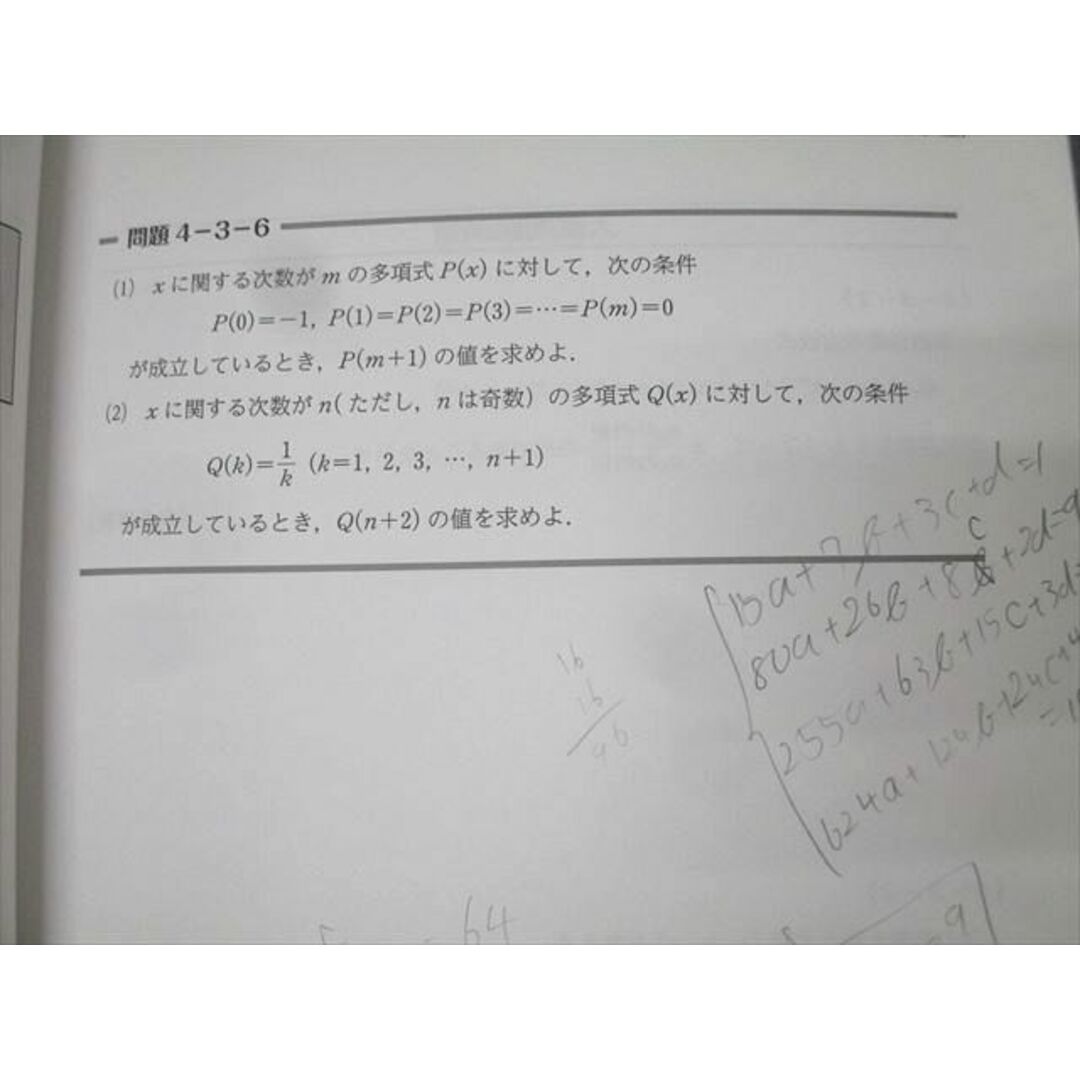 問題 4-3-6
(1) xに関する次数が m の多項式 P(x) に対して，次の条件
P(0)=-1, P(1)=P(2)=P(3)=…=P(m)=0
が成立しているとき，P(m+1) の値を求めよ．
(2) xに関する次数が n(ただし，n は奇数) の多項式 Q(x) に対して，次の条件
Q(k)=1/k (k=1, 2, 3, …, n+1)
が成立しているとき，Q(n+2) の値を求めよ．
15a+7b+3c+d=1
c
80a+26b+8+2d=9
255a+63b+15c+3d=
624a+124b+24c+4
16
46
64
9